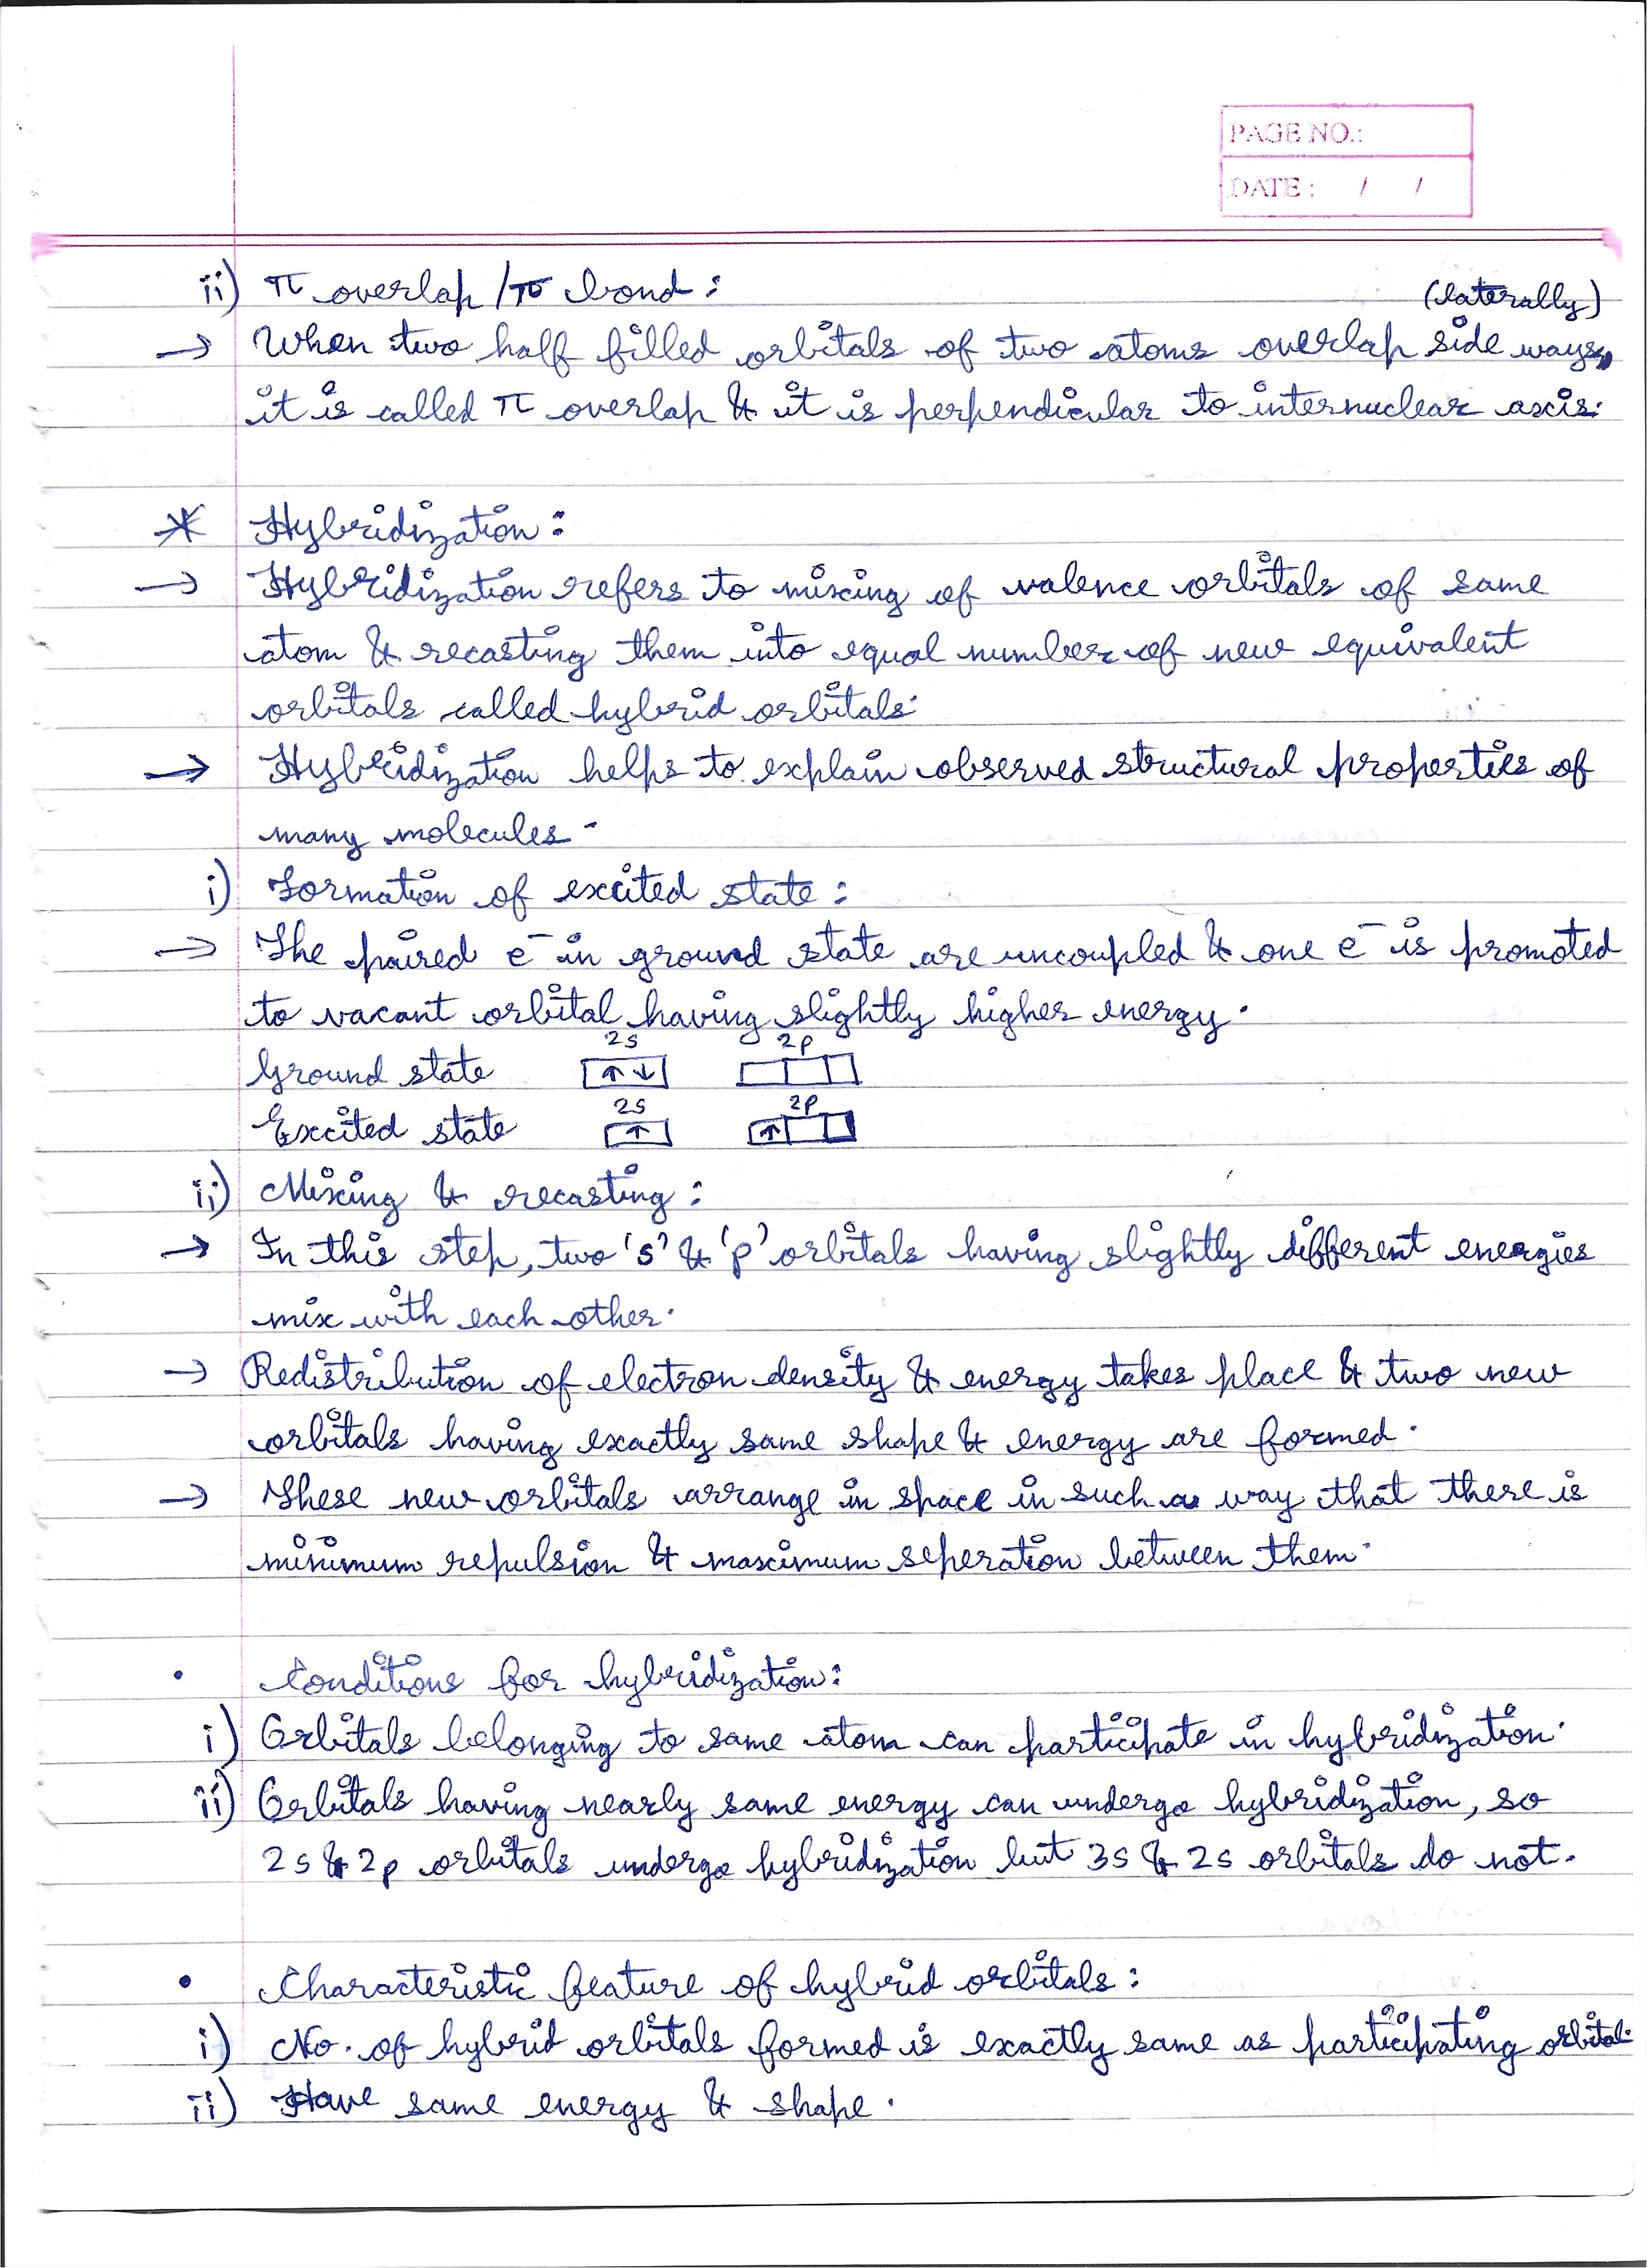 PAGE NO.:
DATE : / /
ii) π overlap / π bond :
(laterally)
→ When two half filled orbitals of two atoms overlap side ways,
it is called π overlap & it is perpendicular to internuclear axis.
* Hybridization :
→ Hybridization refers to mixing of valence orbitals of same
atom & recasting them into equal number of new equivalent
orbitals called hybrid orbitals.
→ Hybridization helps to explain observed structural properties of
many molecules -
i) Formation of excited state :
→ The paired e⁻ in ground state are uncoupled & one e⁻ is promoted
to vacant orbital having slightly higher energy.
2s 2p
Ground state ↑↓
2s 2p
Excited state ↑ ↑
ii) Mixing & recasting :
→ In this step, two 's' & 'p' orbitals having slightly different energies
mix with each other.
→ Redistribution of electron density & energy takes place & two new
orbitals having exactly same shape & energy are formed.
→ These new orbitals arrange in space in such a way that there is
minimum repulsion & maximum seperation between them.
• Conditions for hybridization :
i) Orbitals belonging to same atom can participate in hybridization.
ii) Orbitals having nearly same energy can undergo hybridization, so
2s & 2p orbitals undergo hybridization but 3s & 2s orbitals do not.
• Characteristic feature of hybrid orbitals :
i) No. of hybrid orbitals formed is exactly same as participating orbital.
ii) Have same energy & shape.